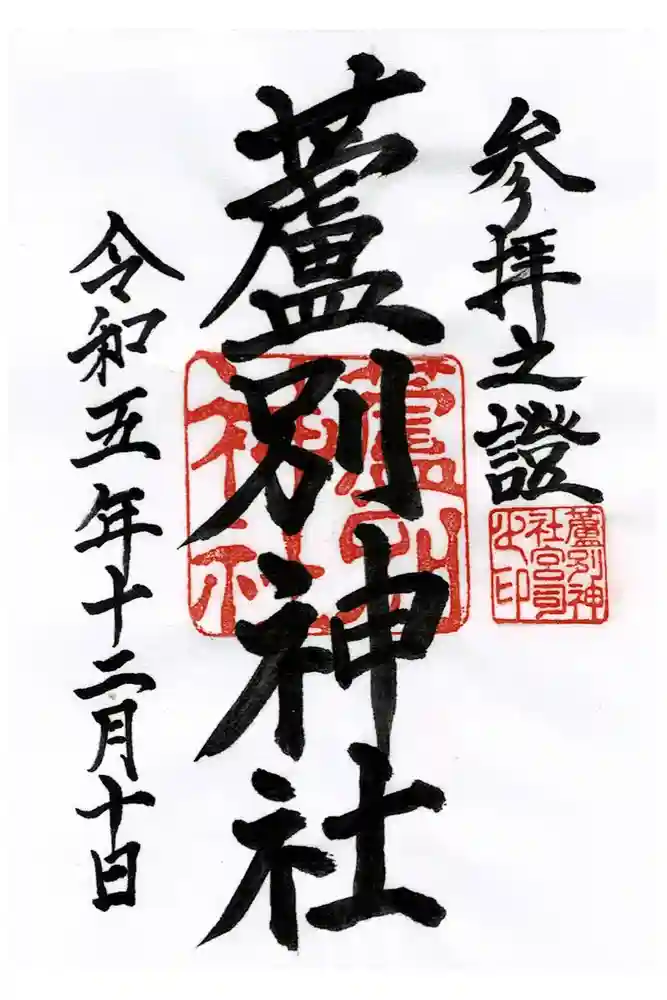 参拝之證
蘆別神
社宮司
之印
蘆別神社
蘆別
神社
令和五年十二月十日